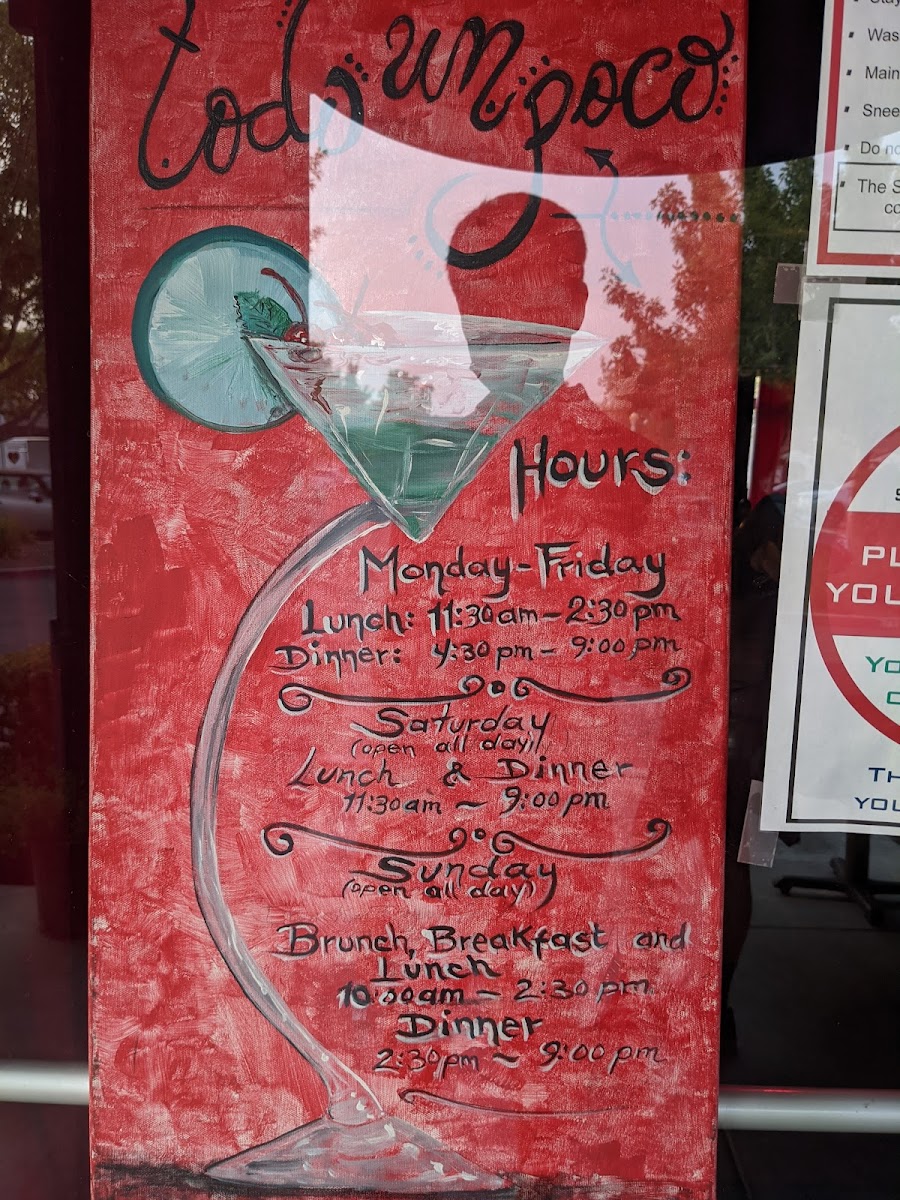 todo un poco
Hours:
Monday-Friday
Lunch: 11:30am - 2:30pm
Dinner: 4:30pm - 9:00pm
Saturday
(open all day)
Lunch & Dinner
11:30am ~ 9:00pm
Sunday
(open all day)
Brunch, Breakfast and
Lunch
10:00am - 2:30pm
Dinner
2:30pm ~ 9:00pm
Was
Main
Snee
Do no
The S
co
PL
YOU
YO
TH
YOU